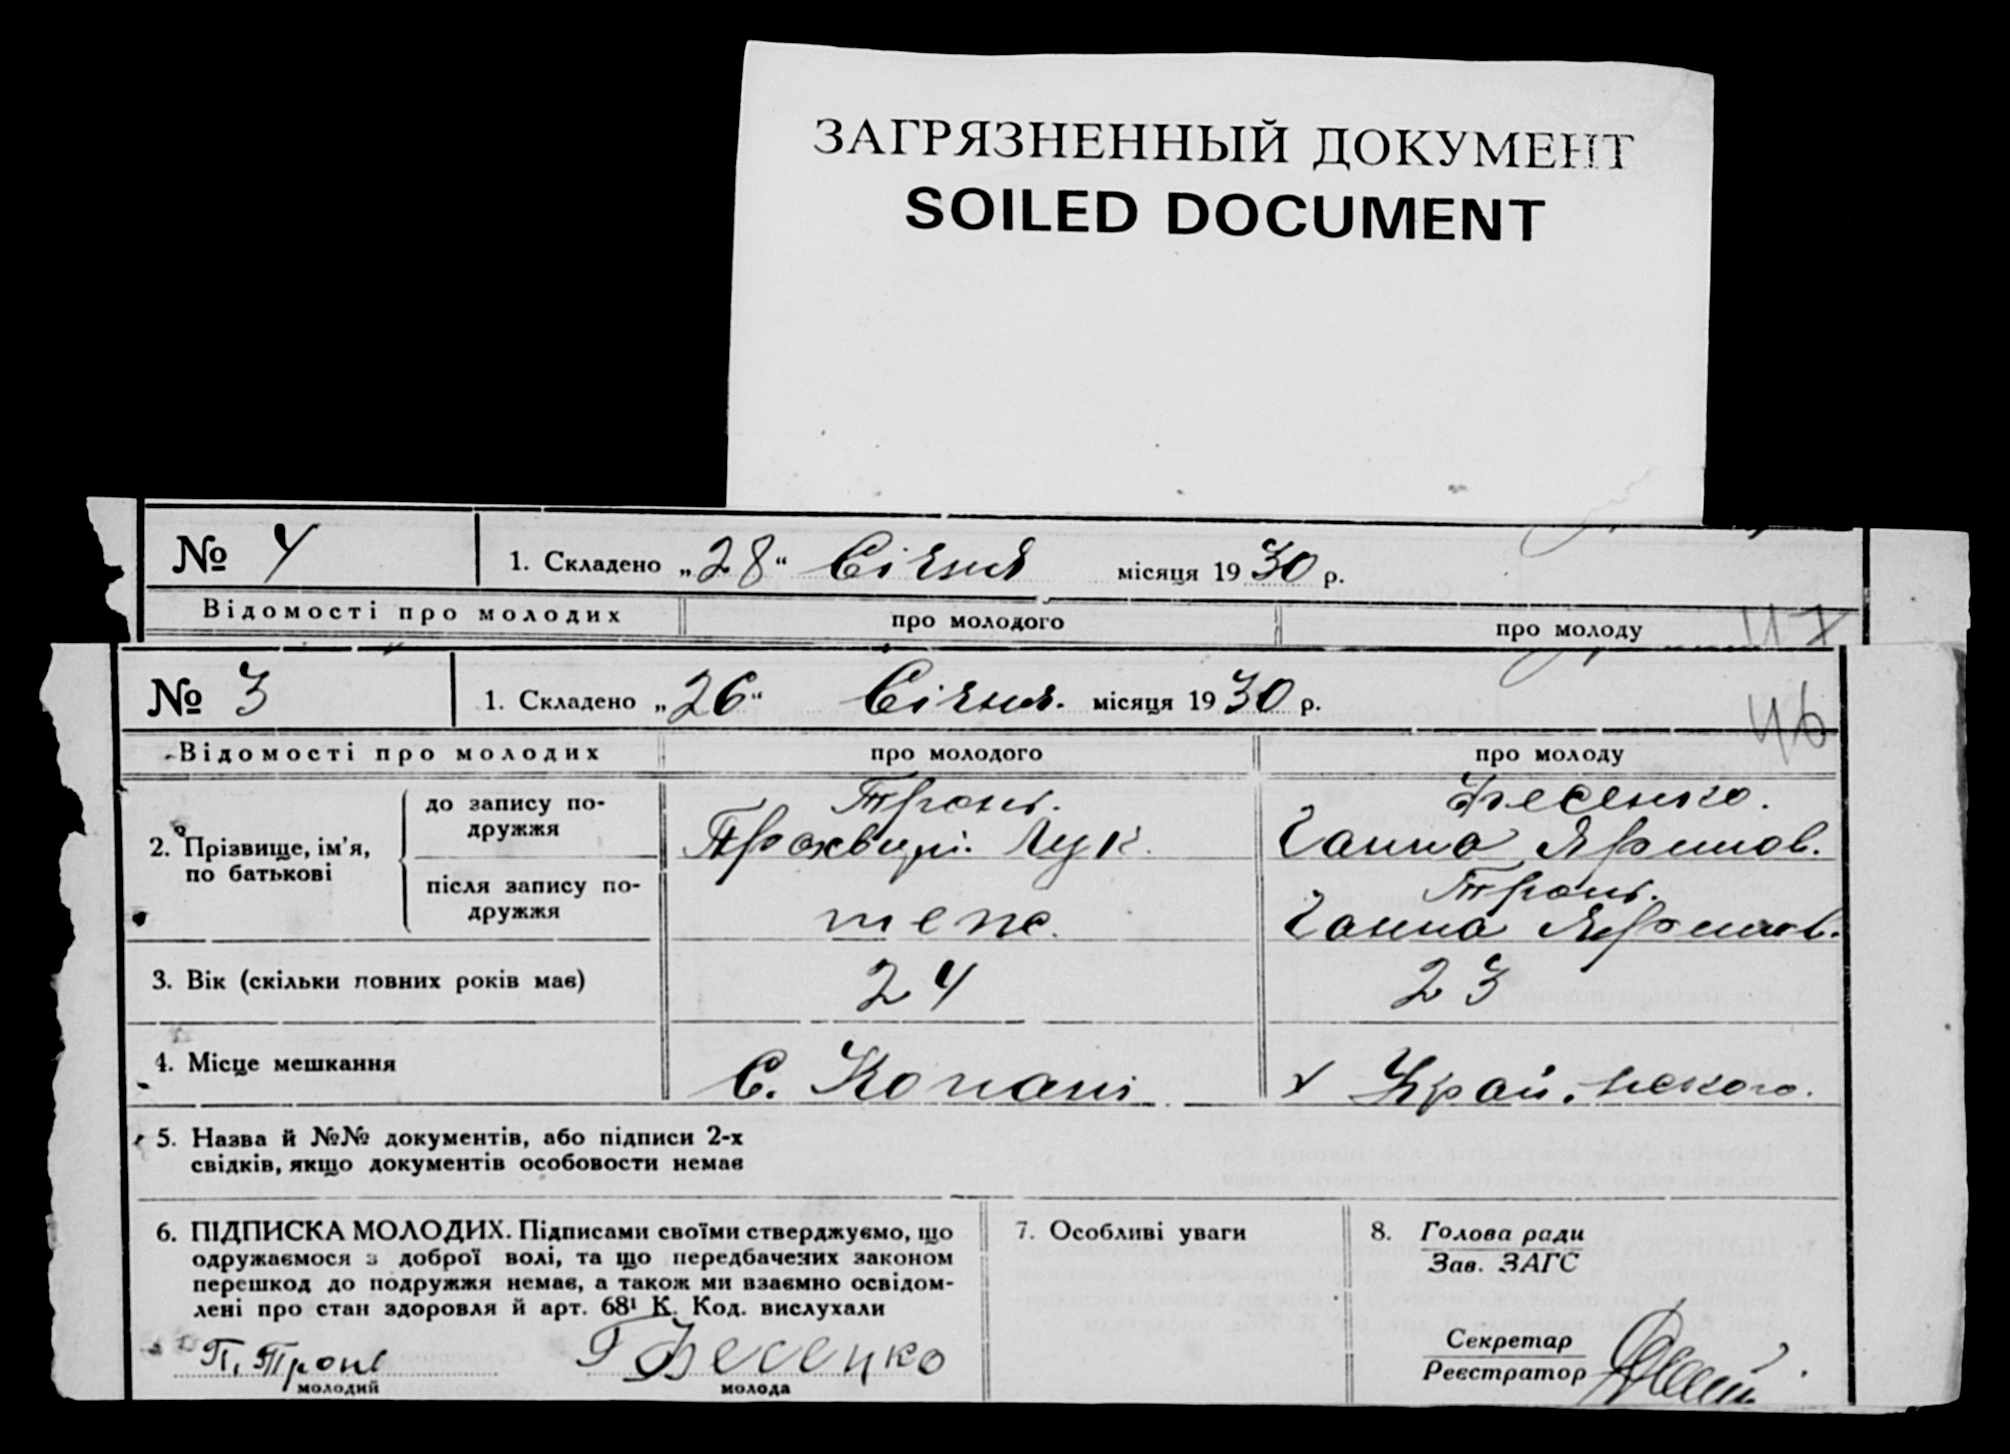 ЗАГРЯЗНЕННЫЙ ДОКУМЕНТ
SOILED DOCUMENT
№ 4 1. Складено „28“ Січня місяця 1930 р.
Відомості про молодих про молодого про молоду
47
№ 3 1. Складено „26“ Січня. місяця 1930 р.
46
Відомості про молодих про молодого про молоду
2. Прізвище, ім'я, по батькові
до запису подружжя
Тронь. Фесенко.
Прохвирі. Лук. Ганна Яфимов.
після запису подружжя
Тронь.
теж. Ганна Яфимов.
3. Вік (скільки повних років має) 24 23
4. Місце мешкання С. Копані х Край.
5. Назва й №№ документів, або підписи 2-х
свідків, якщо документів особовости немає
6. ПІДПИСКА МОЛОДИХ. Підписами своїми стверджуємо, що
одружаємося з доброї волі, та що передбачених законом
перешкод до подружжя немає, а також ми взаємно освідом-
лені про стан здоровля й арт. 68¹ К. Код. вислухали
П. Тронь Г Фесецко
молодий молода
7. Особливі уваги
8. Голова ради
Зав. ЗАГС
Секретар
Реєстратор